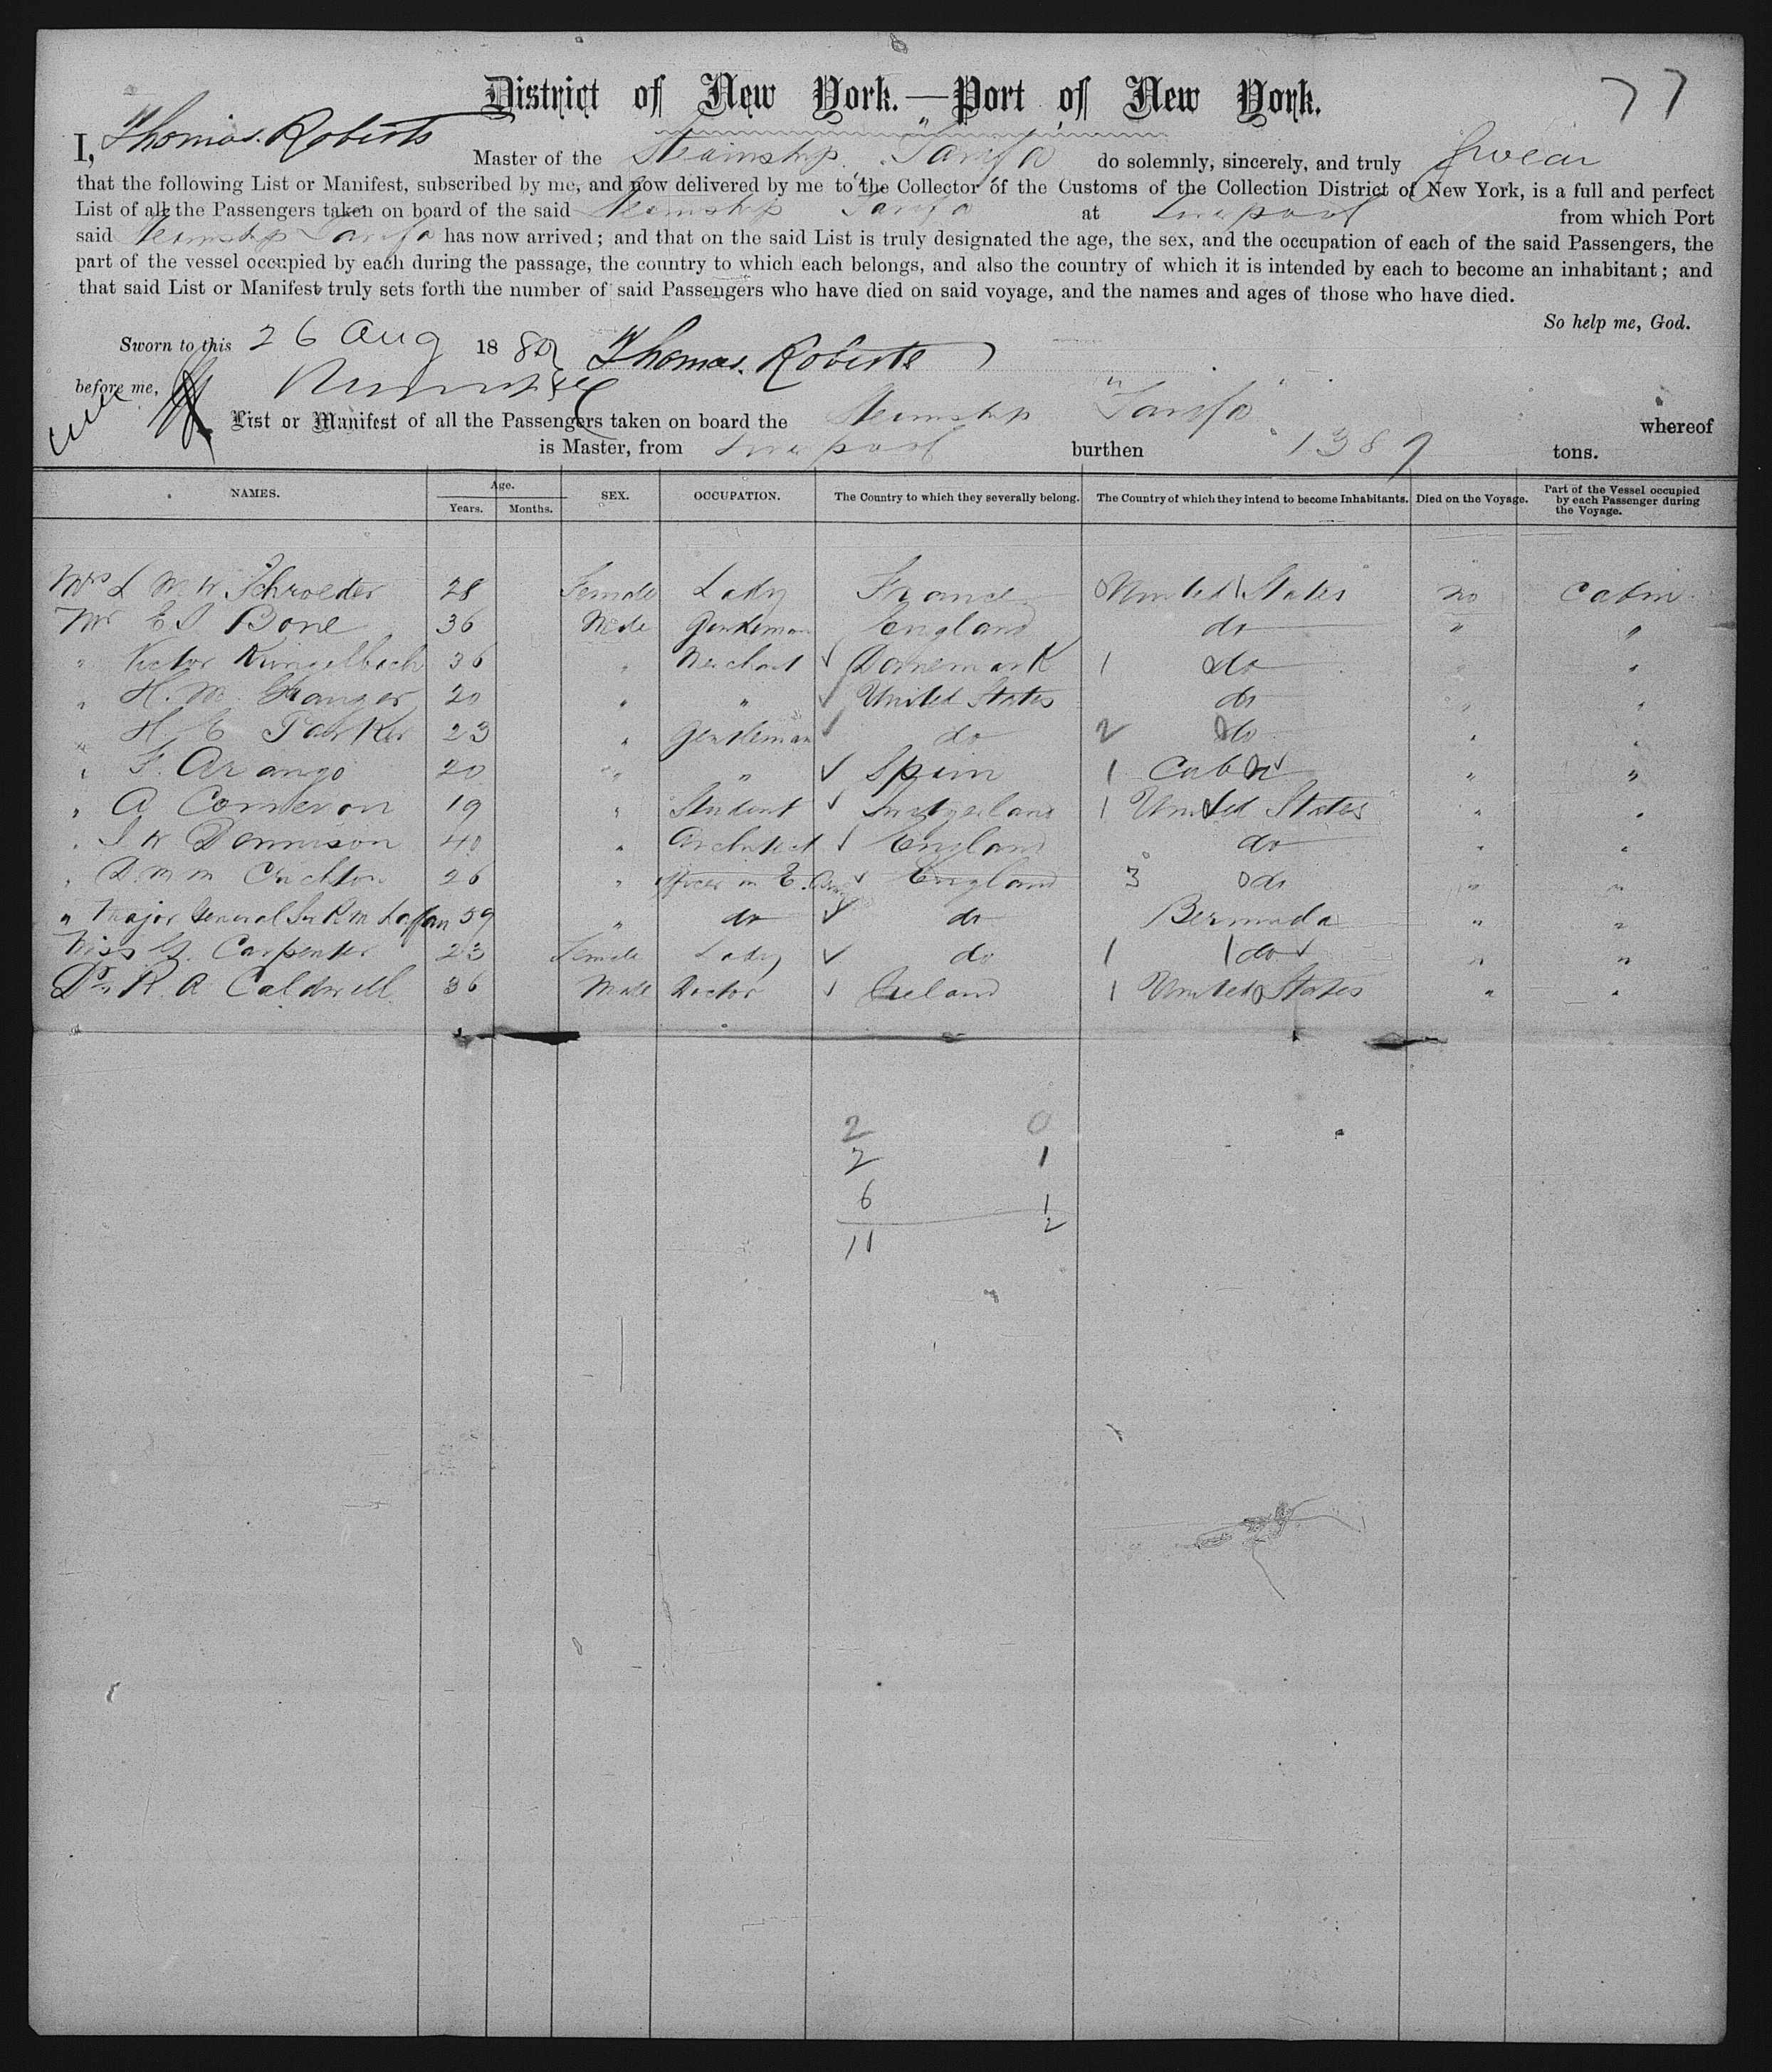 77
District of New York.—Port of New York.
I, Thomas. Roberts Master of the Steamship "Tarifa" do solemnly, sincerely, and truly swear
that the following List or Manifest, subscribed by me, and now delivered by me to the Collector of the Customs of the Collection District of New York, is a full and perfect
List of all the Passengers taken on board of the said Steamship Tarifa at Liverpool from which Port
said Steamship Tarifa has now arrived; and that on the said List is truly designated the age, the sex, and the occupation of each of the said Passengers, the
part of the vessel occupied by each during the passage, the country to which each belongs, and also the country of which it is intended by each to become an inhabitant; and
that said List or Manifest truly sets forth the number of said Passengers who have died on said voyage, and the names and ages of those who have died.
So help me, God.
Sworn to this 26 Aug 1880 Thomas. Roberts
before me,
List or Manifest of all the Passengers taken on board the Steamship "Tarifa" whereof
is Master, from Liverpool burthen 1389 tons.
NAMES. Age. Years. Months. SEX. OCCUPATION. The Country to which they severally belong. The Country of which they intend to become Inhabitants. Died on the Voyage. Part of the Vessel occupied by each Passenger during the Voyage.
Mrs L W W Schroeder 28 Female Lady France United States no Cabin
Mr E J Bone 36 Male Gentleman England do " "
" Victor Kringelbach 36 " Merchant √ Danemark 1 do " "
" H. M. Granger 20 " " √ United States do " "
" H. C Parker 23 " Gentleman √ do 2 do " "
" F. Arango 20 " " √ Spain 1 Cuba √ " "
" A Cameron 19 " Student √ Switzerland 1 United States " "
" J W Dennison 40 " Architect √ England do " "
" D. M M Crichton 26 " Officer in E. Army √ England 3 do " "
" Major General Sir R M Laffan 59 " do √ do Bermuda " "
Miss G. Carpenter 23 Female Lady √ do 1 do √ " "
Dr. R. A Caldwell 36 Male Doctor √ Ireland 1 United States " "
2 0
2 1
6 1
11 2